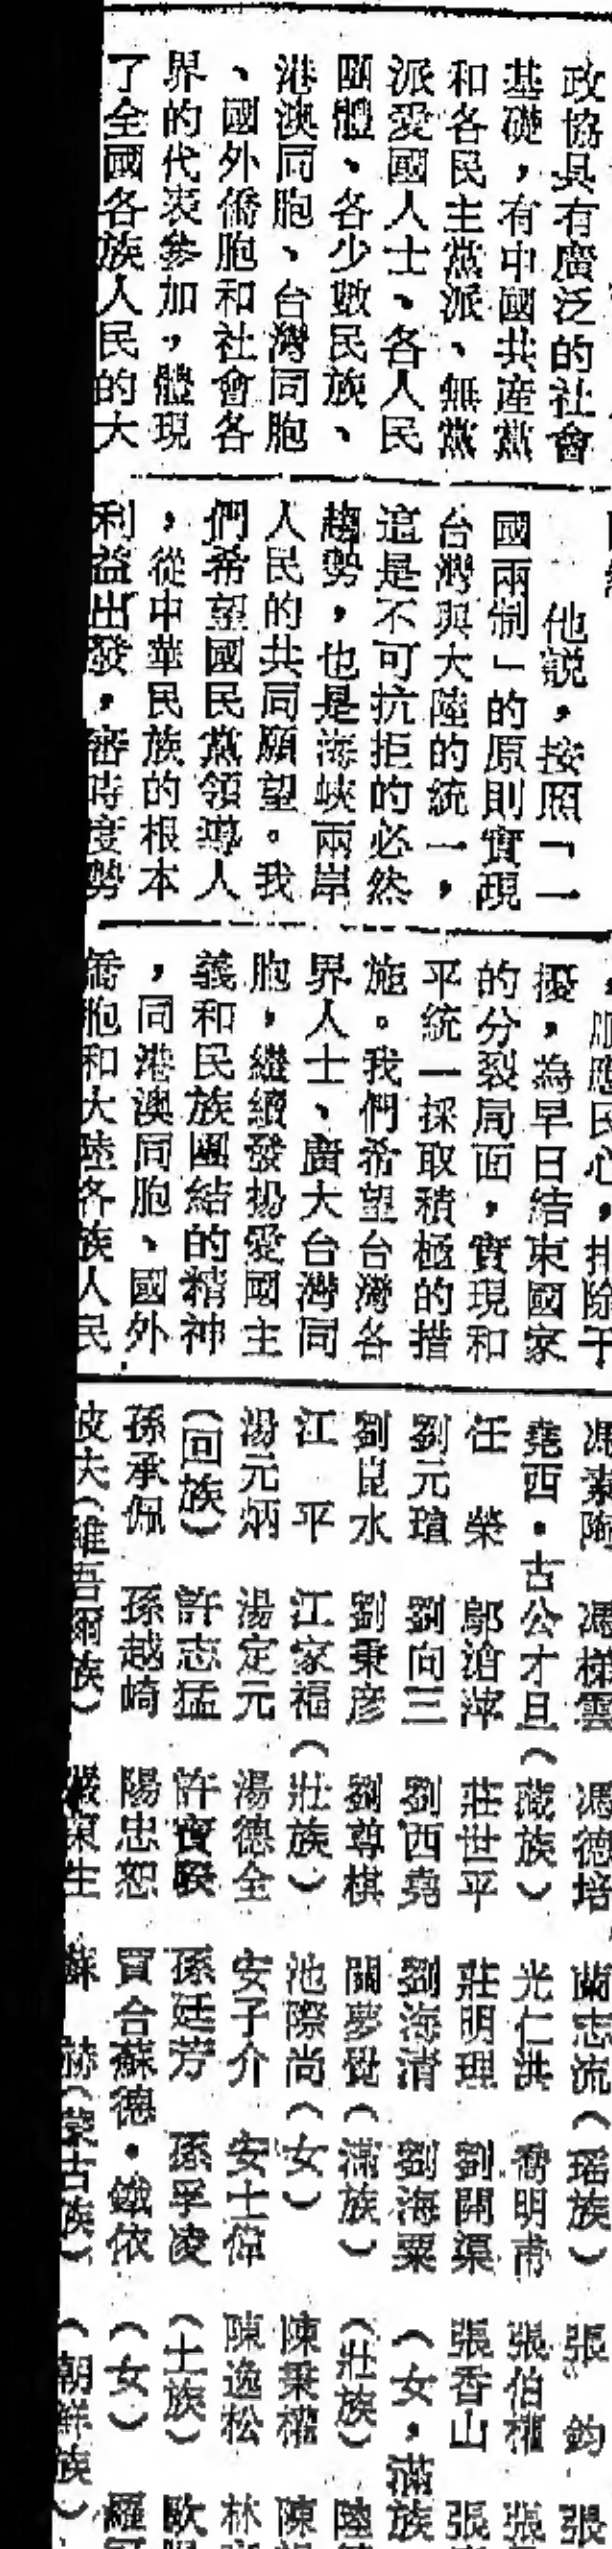 政協具有廣泛的社會
基礎，有中國共產黨
和各民主黨派、無黨
派愛國人士、各人民
團體、各少數民族、
港澳同胞、台灣同胞
、國外僑胞和社會各
界的代表參加，體現
了全國各族人民的大
他說，按照「一
國兩制」的原則實現
台灣與大陸的統一，
這是不可抗拒的必然
趨勢，也是海峽兩岸
人民的共同願望。我
們希望國民黨領導人
，從中華民族的根本
利益出發，審時度勢
，順應民心，排除干
擾，為早日結束國家
的分裂局面，實現和
平統一採取積極的措
施。我們希望台灣各
界人士、廣大台灣同
胞，繼續發揚愛國主
義和民族團結的精神
，同港澳同胞、國外
僑胞和大陸各族人民
馮素陶 馮梯雲 馮德培 蘭志流（瑤族） 張 鈞 張
堯西·古公才旦（藏族） 光仁洪 喬明甫 張伯權 張
任 榮 鄔滄萍 莊世平 莊明理 劉開渠 張香山 張
劉元瑄 劉向三 劉西堯 劉海清 劉海粟 （女，滿族
劉昆水 劉秉彥 劉尊棋 關夢覺（滿族） （壯族） 陸
江 平 江家福（壯族） 池際尚（女） 陳秉權 陳
湯元炳 湯定元 湯德全 安子介 安士偉 陳逸松 林
（回族） 許志猛 許寶騤 孫廷芳 孫孚凌 （土族） 歐
孫承佩 孫越崎 陽忠恕 買合蘇德·鐵依 （女） 羅
皮夫（維吾爾族） 嚴東生 蘇 赫（蒙古族） （朝鮮族）